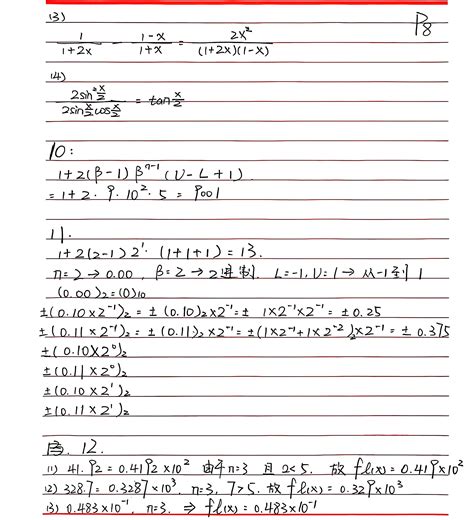 P8
(3)
1/(1+2x) - (1-x)/(1+x) = 2x²/((1+2x)(1-x))
(4)
2sin²(x/2) / (2sin(x/2)cos(x/2)) = tan(x/2)
10:
1+2(β-1)β^(n-1)(U-L+1)
=1+2·9·10²·5=9001
11.
1+2(2-1)2¹·(1+1+1)=13.
n=2→0.00, β=2→2进制. L=-1, U=1→从-1到1
(0.00)₂=(0)₁₀
±(0.10×2⁻¹)₂=±(0.10)₂×2⁻¹=±1×2⁻¹×2⁻¹=±0.25
±(0.11×2⁻¹)₂=±(0.11)₂×2⁻¹=±(1×2⁻¹+1×2⁻²)₂×2⁻¹=±0.375
±(0.10×2⁰)₂
±(0.11×2⁰)₂
±(0.10×2¹)₂
±(0.11×2¹)₂
12.
(1) 41.92=0.4192×10² 由于n=3 且2<5. 故fl(x)=0.419×10²
(2) 328.7=0.3287×10³, n=3, 7>5. 故fl(x)=0.329×10³
(3) 0.483×10⁻¹, n=3. ⇒ fl(x)=0.483×10⁻¹